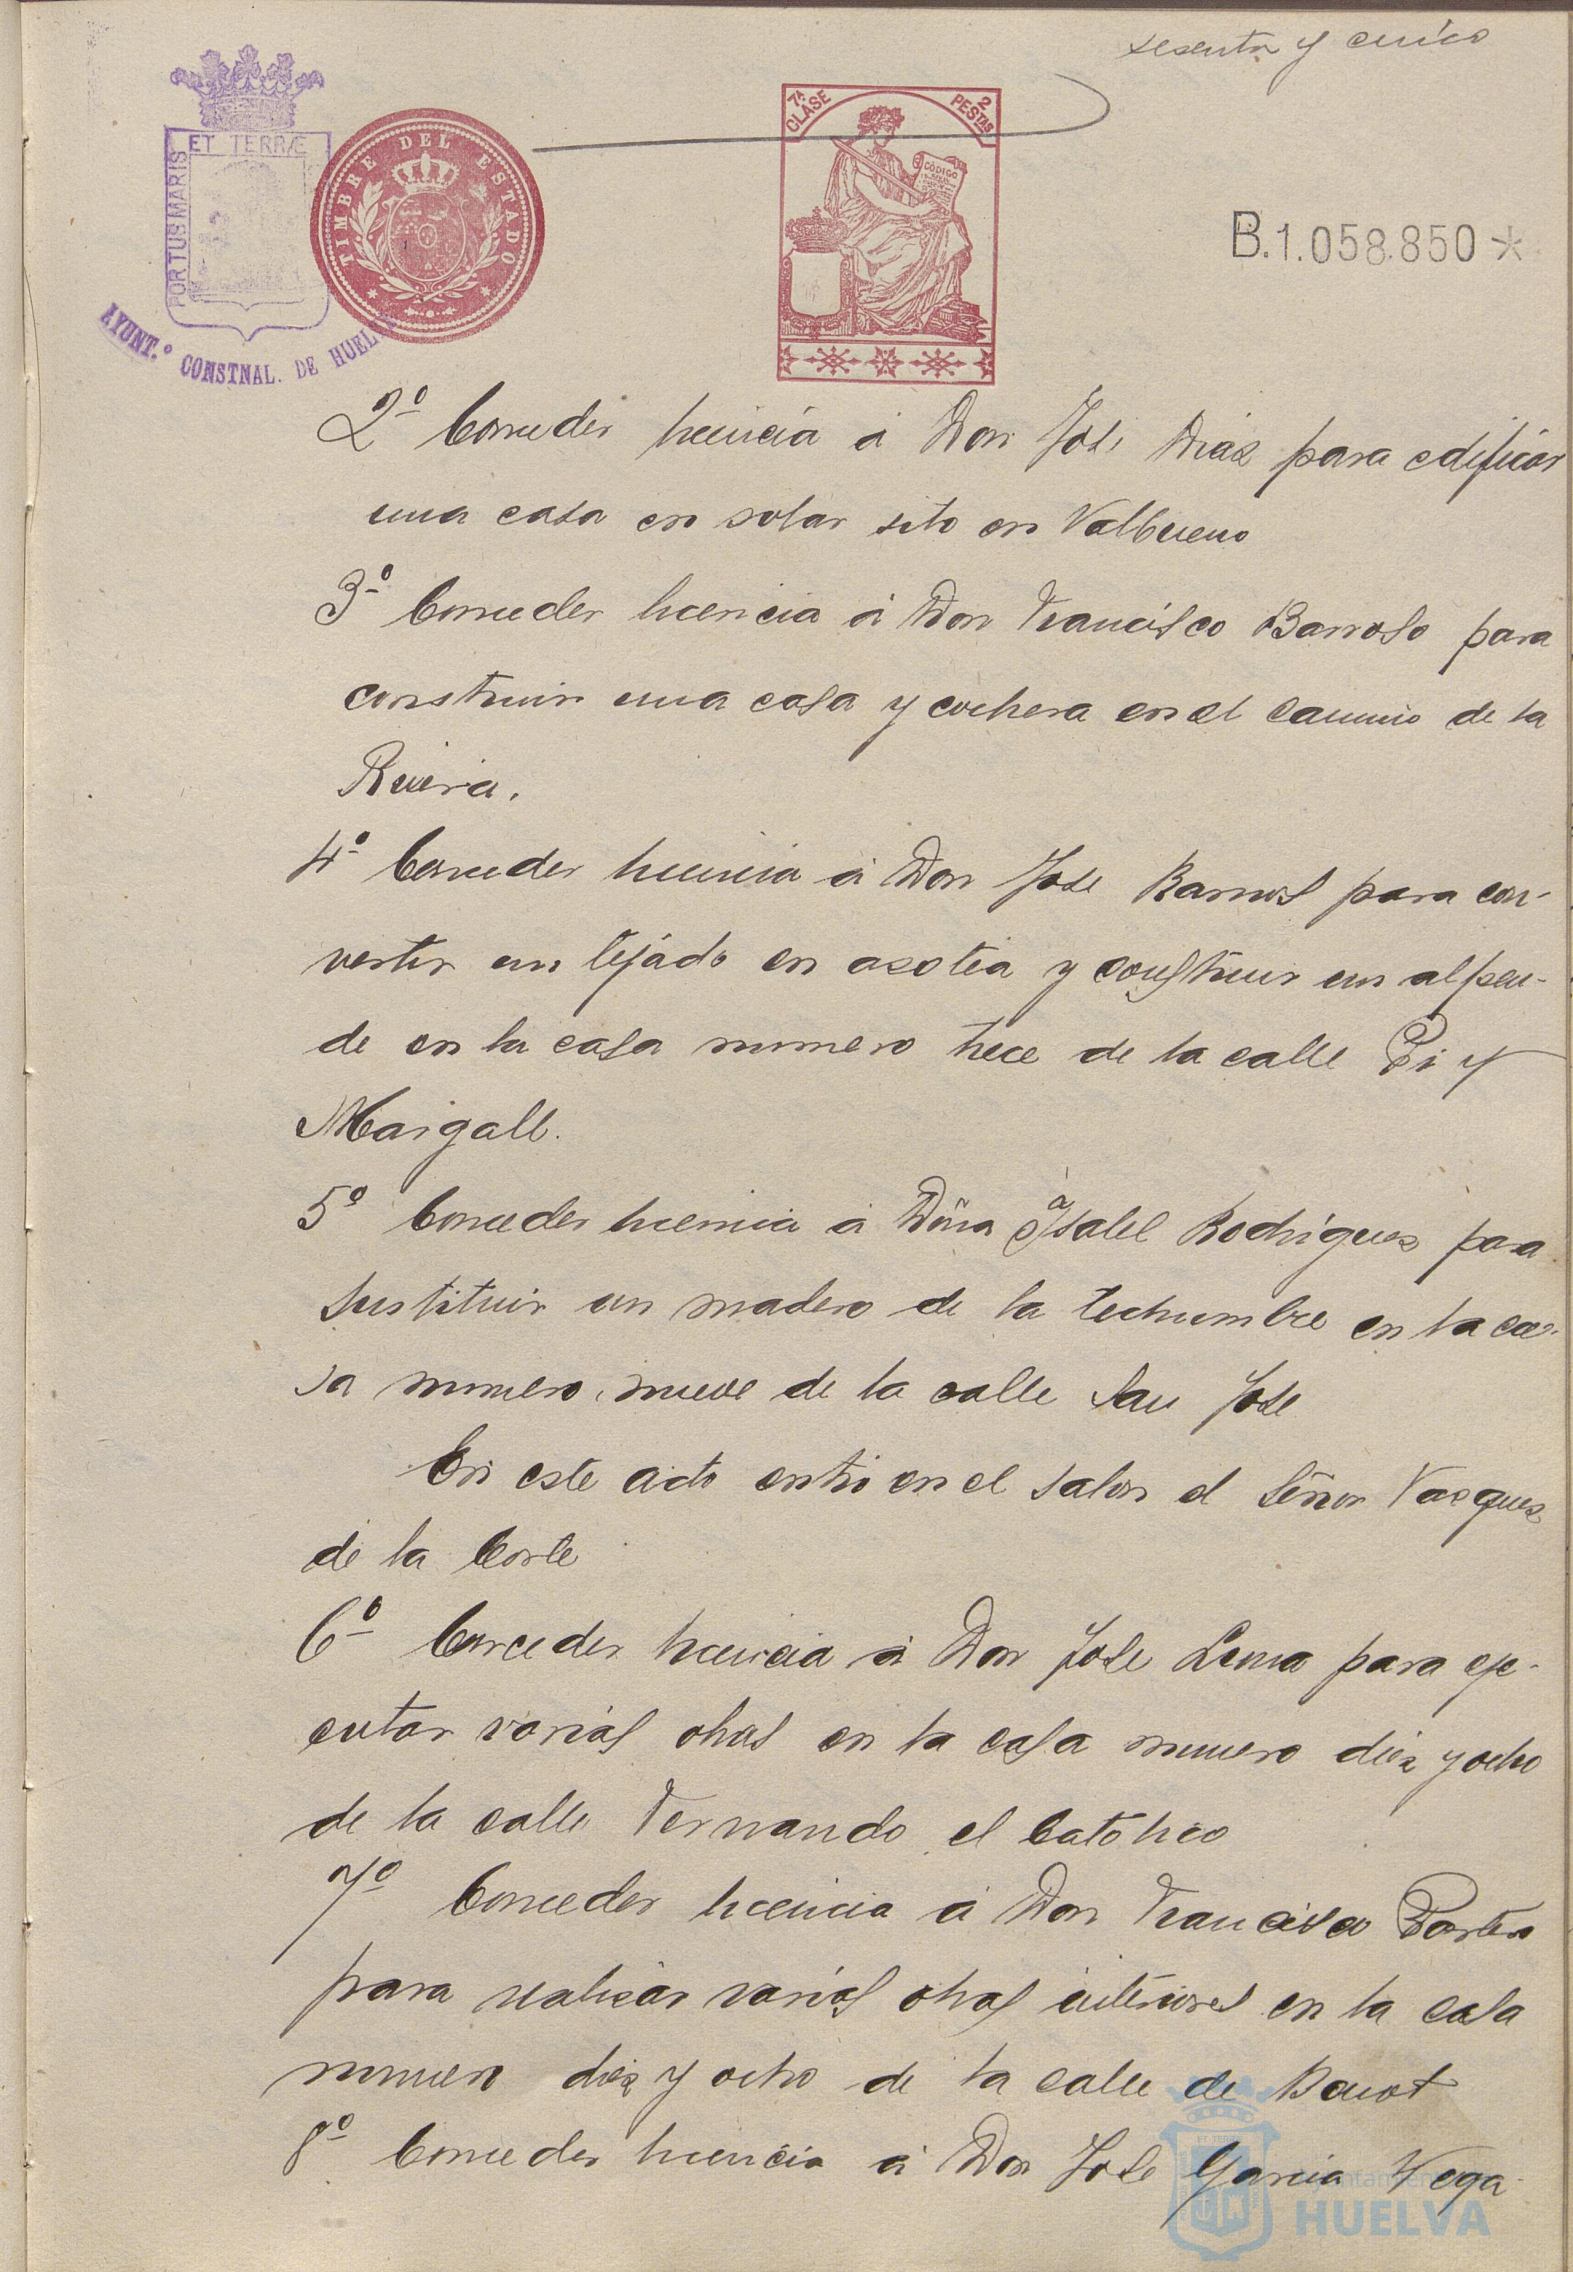 sesenta y cinco
ET TERRÆ
PORTUS MARIS
AYUNT.º CONSTNAL. DE HUELVA
TIMBRE DEL ESTADO
7ª CLASE
2 PESTAS
CODIGO
B.1.058.850*
2º Conceder licencia á Don José Diaz para edificar
una casa en solar sito en Valbueno
3º Conceder licencia á Don Francisco Barroso para
construir una casa y cochera en el camino de la
Rivera.
4º Conceder licencia á Don José Ramos para con-
vertir un tejado en asotea y construir un alpen-
de en la casa numero trece de la calle Pi y
Margall.
5º Conceder licencia á Doña Isabel Rodriguez para
sustituir un madero de la techumbre en la ca-
sa numero nueve de la calle San José
En este acto entró en el salon el Señor Vazquez
de la Corte
6º Conceder licencia á Don José Lema para eje-
cutar varias obras en la casa numero diez y ocho
de la calle Fernando el Católico
7º Conceder licencia á Don Francisco
para realizar varias obras interiores en la casa
numero diez y ocho de la calle de
8º Conceder licencia á Don José Garcia Vega
Ayuntamiento
HUELVA